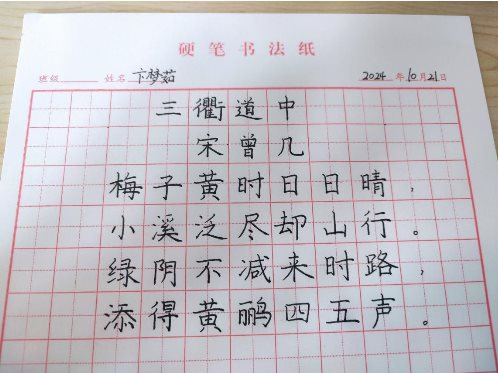 硬笔书法纸
班级 姓名 卞梦茹 2024年10月21日
三衢道中
宋曾几
梅子黄时日日晴，
小溪泛尽却山行。
绿阴不减来时路，
添得黄鹂四五声。